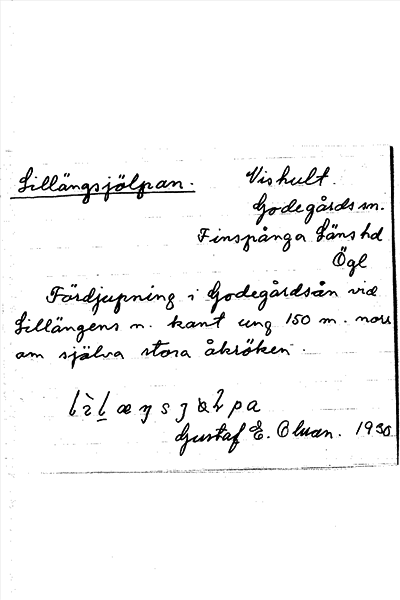 Lillängsjölpan.
Vishult.
Godegårds sn.
Finspånga Läns hd
Ögl
Fördjupning i Godegårdsån vid
Lillängens n. kant ung 150 m. norr
om själva stora åkröken.
Gustaf E. Olson. 1930